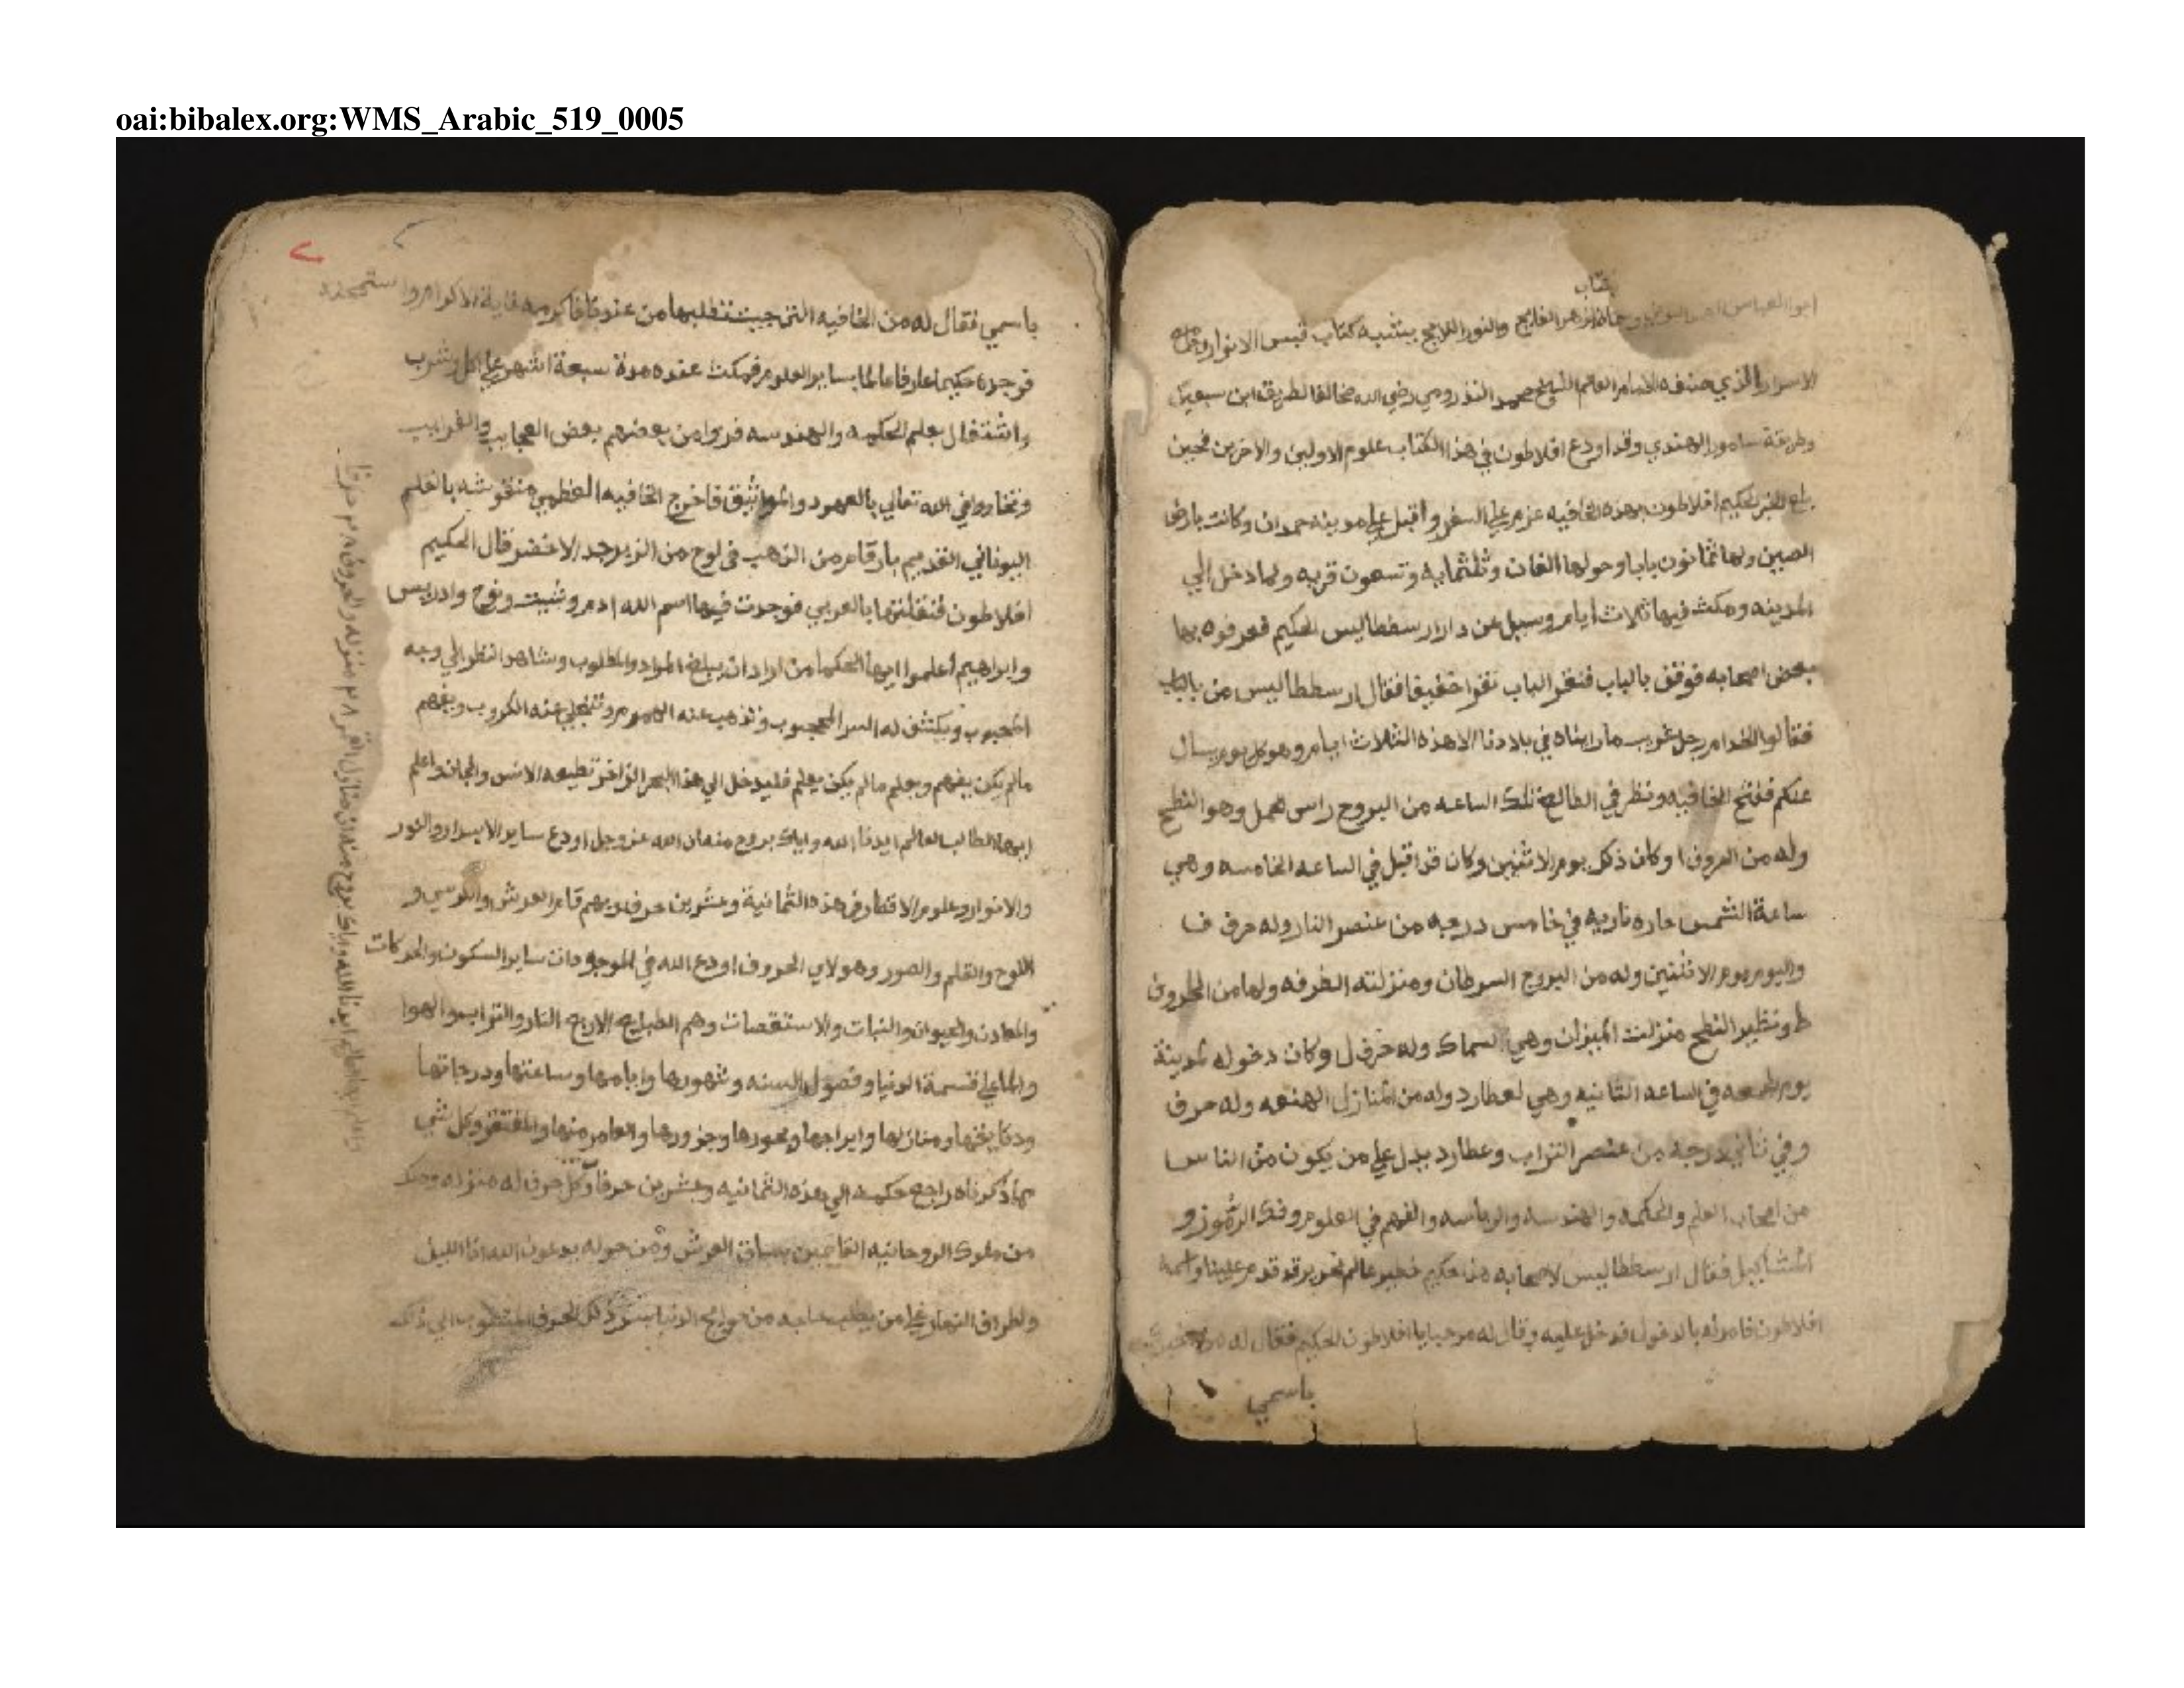 oai:bibalex.org:WMS_Arabic_519_0005
كتاب
ابو العباس احمد البوني وسماه الزهر الفايح والنور اللايح يشبه كتاب قبس الانوار وجامع
الاسرار الذي صنفه الامام العالم الشيخ محمد الندرومي رضي الله مخالفا لطريقة ابن سبعين
وطريقة سامور الهندي وقد اودع افلاطون في هذا الكتاب علوم الاولين والاخرين فحين
بلغ الخبر لحكيم افلاطون بهذه الخافيه عزم علي السفر واقبل علي مدينه حمدان وكانت بارض
الصين ولها ثمانون بابا وحولها الفان وثلثمايه وتسعون قريه ولما دخل الي
المدينه ومكث فيها ثلاث ايام وسيل عن دار ارسططاليس الحكيم فعرفوه بها
بعض اصحابه فوقف بالباب فنقر الباب نقرا خفيفا فقال ارسططاليس من بالباب
فقالوا الخدام رجل غريب ما رايناه في بلادنا الا هذه الثلاث ايام وهو كل يوم يسال
عنكم ففتح الخافيه ونظر في الطالع تلك الساعه من البروج راس الحمل وهو النطح
وله من الحروف ا وكان ذلك يوم الاثنين وكان قد اقبل في الساعه الخامسه وهي
ساعة الشمس حاره ناريه في خامس درجه من عنصر النار وله حرف ف
واليوم يوم الاثنين وله من البروج السرطان ومنزلته الطرفه ولها من الحروف
ط ونظير النطح منزلت الميزان وهي السماك وله حرف ل وكان دخوله لمدينة
يوم الجمعه في الساعه الثانيه وهي لعطارد وله من المنازل الهنعه وله حرف
وفي ثاني درجه من عنصر التراب وعطارد يدل علي من يكون من الناس
من اصحاب العلم والحكمه والهندسه والرياسه والفهم في العلوم وفك الرموز و
المشاكيل فقال ارسططاليس لاصحابه هذا حكيم خبير عالم نحرير قد قدم علينا واسمه
افلاطون فامر له بالدخول فدخل عليه وقال له مرحبا يا افلاطون الحكيم فقال له من
باسمي
باسمي فقال له من الخافيه التي جيت تطلبها من عندنا فاكرمه غاية الاكرام واستمحنه
فوجده حكيما عارفا عالما بساير العلوم فمكث عنده مدة سبعة اشهر علي اكل وشرب
واشتغال بعلم الحكمه والهندسه فروا من بعضهم بعض العجايب والغرايب
وتخاروا في الله تعالي بالعهود والمواثيق فاخرج الخافيه العظمي منقوشه بالقلم
اليوناني القديم بارقام من الذهب في لوح من الزبرجد الاخضر قال الحكيم
افلاطون فنقلتها بالعربي فوجدت فيها اسم الله ادم وشيت ونوح وادريس
وابراهيم اعلموا ايها الحكما من اراد ان يبلغ المراد والمطلوب وشاهد النظر الي وجه
المحبوب ويكشف له السر المحجوب وتذهب عنه الهموم وتنجلي عنه الكروب ويفهم
مالم يكن يفهم ويعلم مالم يكن يعلم فليدخل الي هذا البحر الزاخر تطيعه الانس والجان واعلم
ايها الطالب العالم ايدنا الله واياك بروح منه ان الله عز وجل اودع ساير الاسرار والنور
والانوار وعلوم الاقطار في هذه الثمانية وعشرين حرف وبهم قام العرش والكرسي و
اللوح والقلم والصور وهولاي الحروف اودع الله في الموجودات ساير السكون والحركات
والمعادن والحيوان والنبات والاستقصات وهم الطبايع الاربع النار والتراب والهوا
والما علي قسمة الدنيا وفصول السنه وشهورها وايامها وساعتها ودرجاتها
ودقايقها ومنازلها وابراجها وبحورها وجزورها والعامر منها والمقفر وكل شي
مما ذكرناه راجع حكمه الي هذه الثمانيه وعشرين حرفا وكل حرف له منزله وملك
من ملوك الروحانيه القايمين بساق العرش ومن حوله يدعون الله انا الليل
واطراف النهار علي من يطلب حاجه من حوايج الدنيا بسر ذلك الحرف المنطوب الي ذلك
ايدنا الله واياك بروح منه ان منازل القمر ٢٨ منزله والحروف ٢٨ حرفا